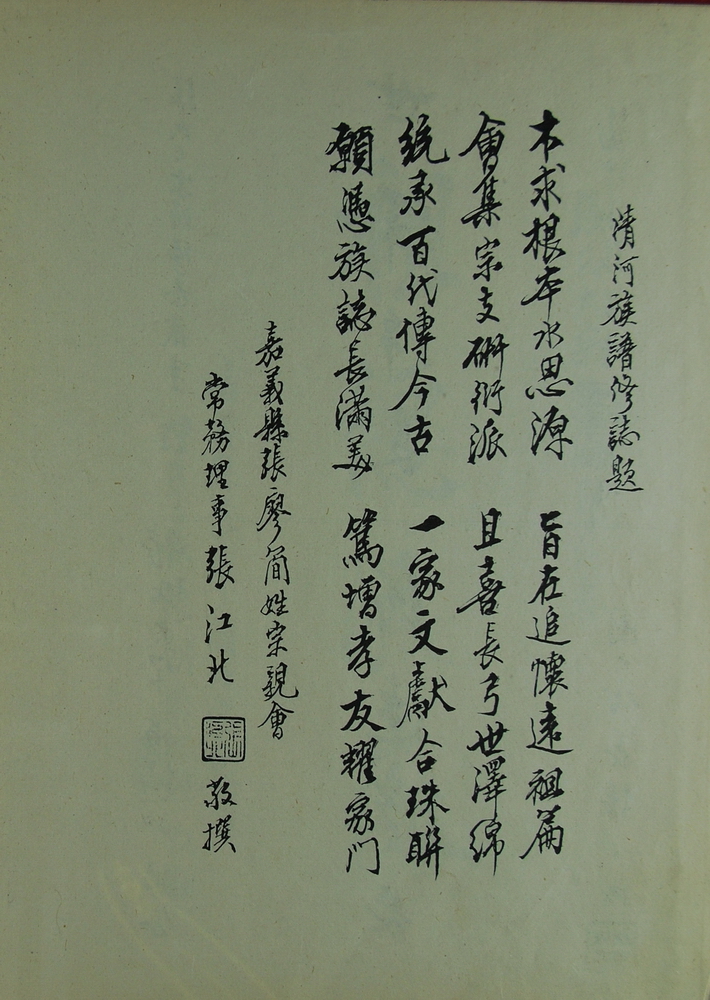 清河族譜修誌題
木求根本水思源 旨在追懷遠祖篇
會集宗支研衍派 且喜長弓世澤綿
統承百代傳今古 一家文獻合珠聯
願憑族誌長滿美 篤增孝友耀家門
嘉義縣張廖簡姓宗親會
常務理事張江北 敬撰